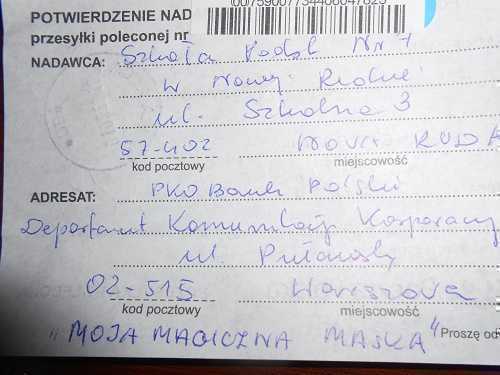 (00)759007734406047825
POTWIERDZENIE NAD
przesyłki poleconej nr
NADAWCA: Szkoła Podst Nr 7
w Nowej Rudzie
ul. Szkolna 3
57-402 NOWA RUDA
kod pocztowy miejscowość
ADRESAT: PKO Bank Polski
Departament Komunikacji Korporacy
ul. Puławska
02-515 Warszawa
kod pocztowy miejscowość
"MOJA MAGICZNA MASKA" Proszę od